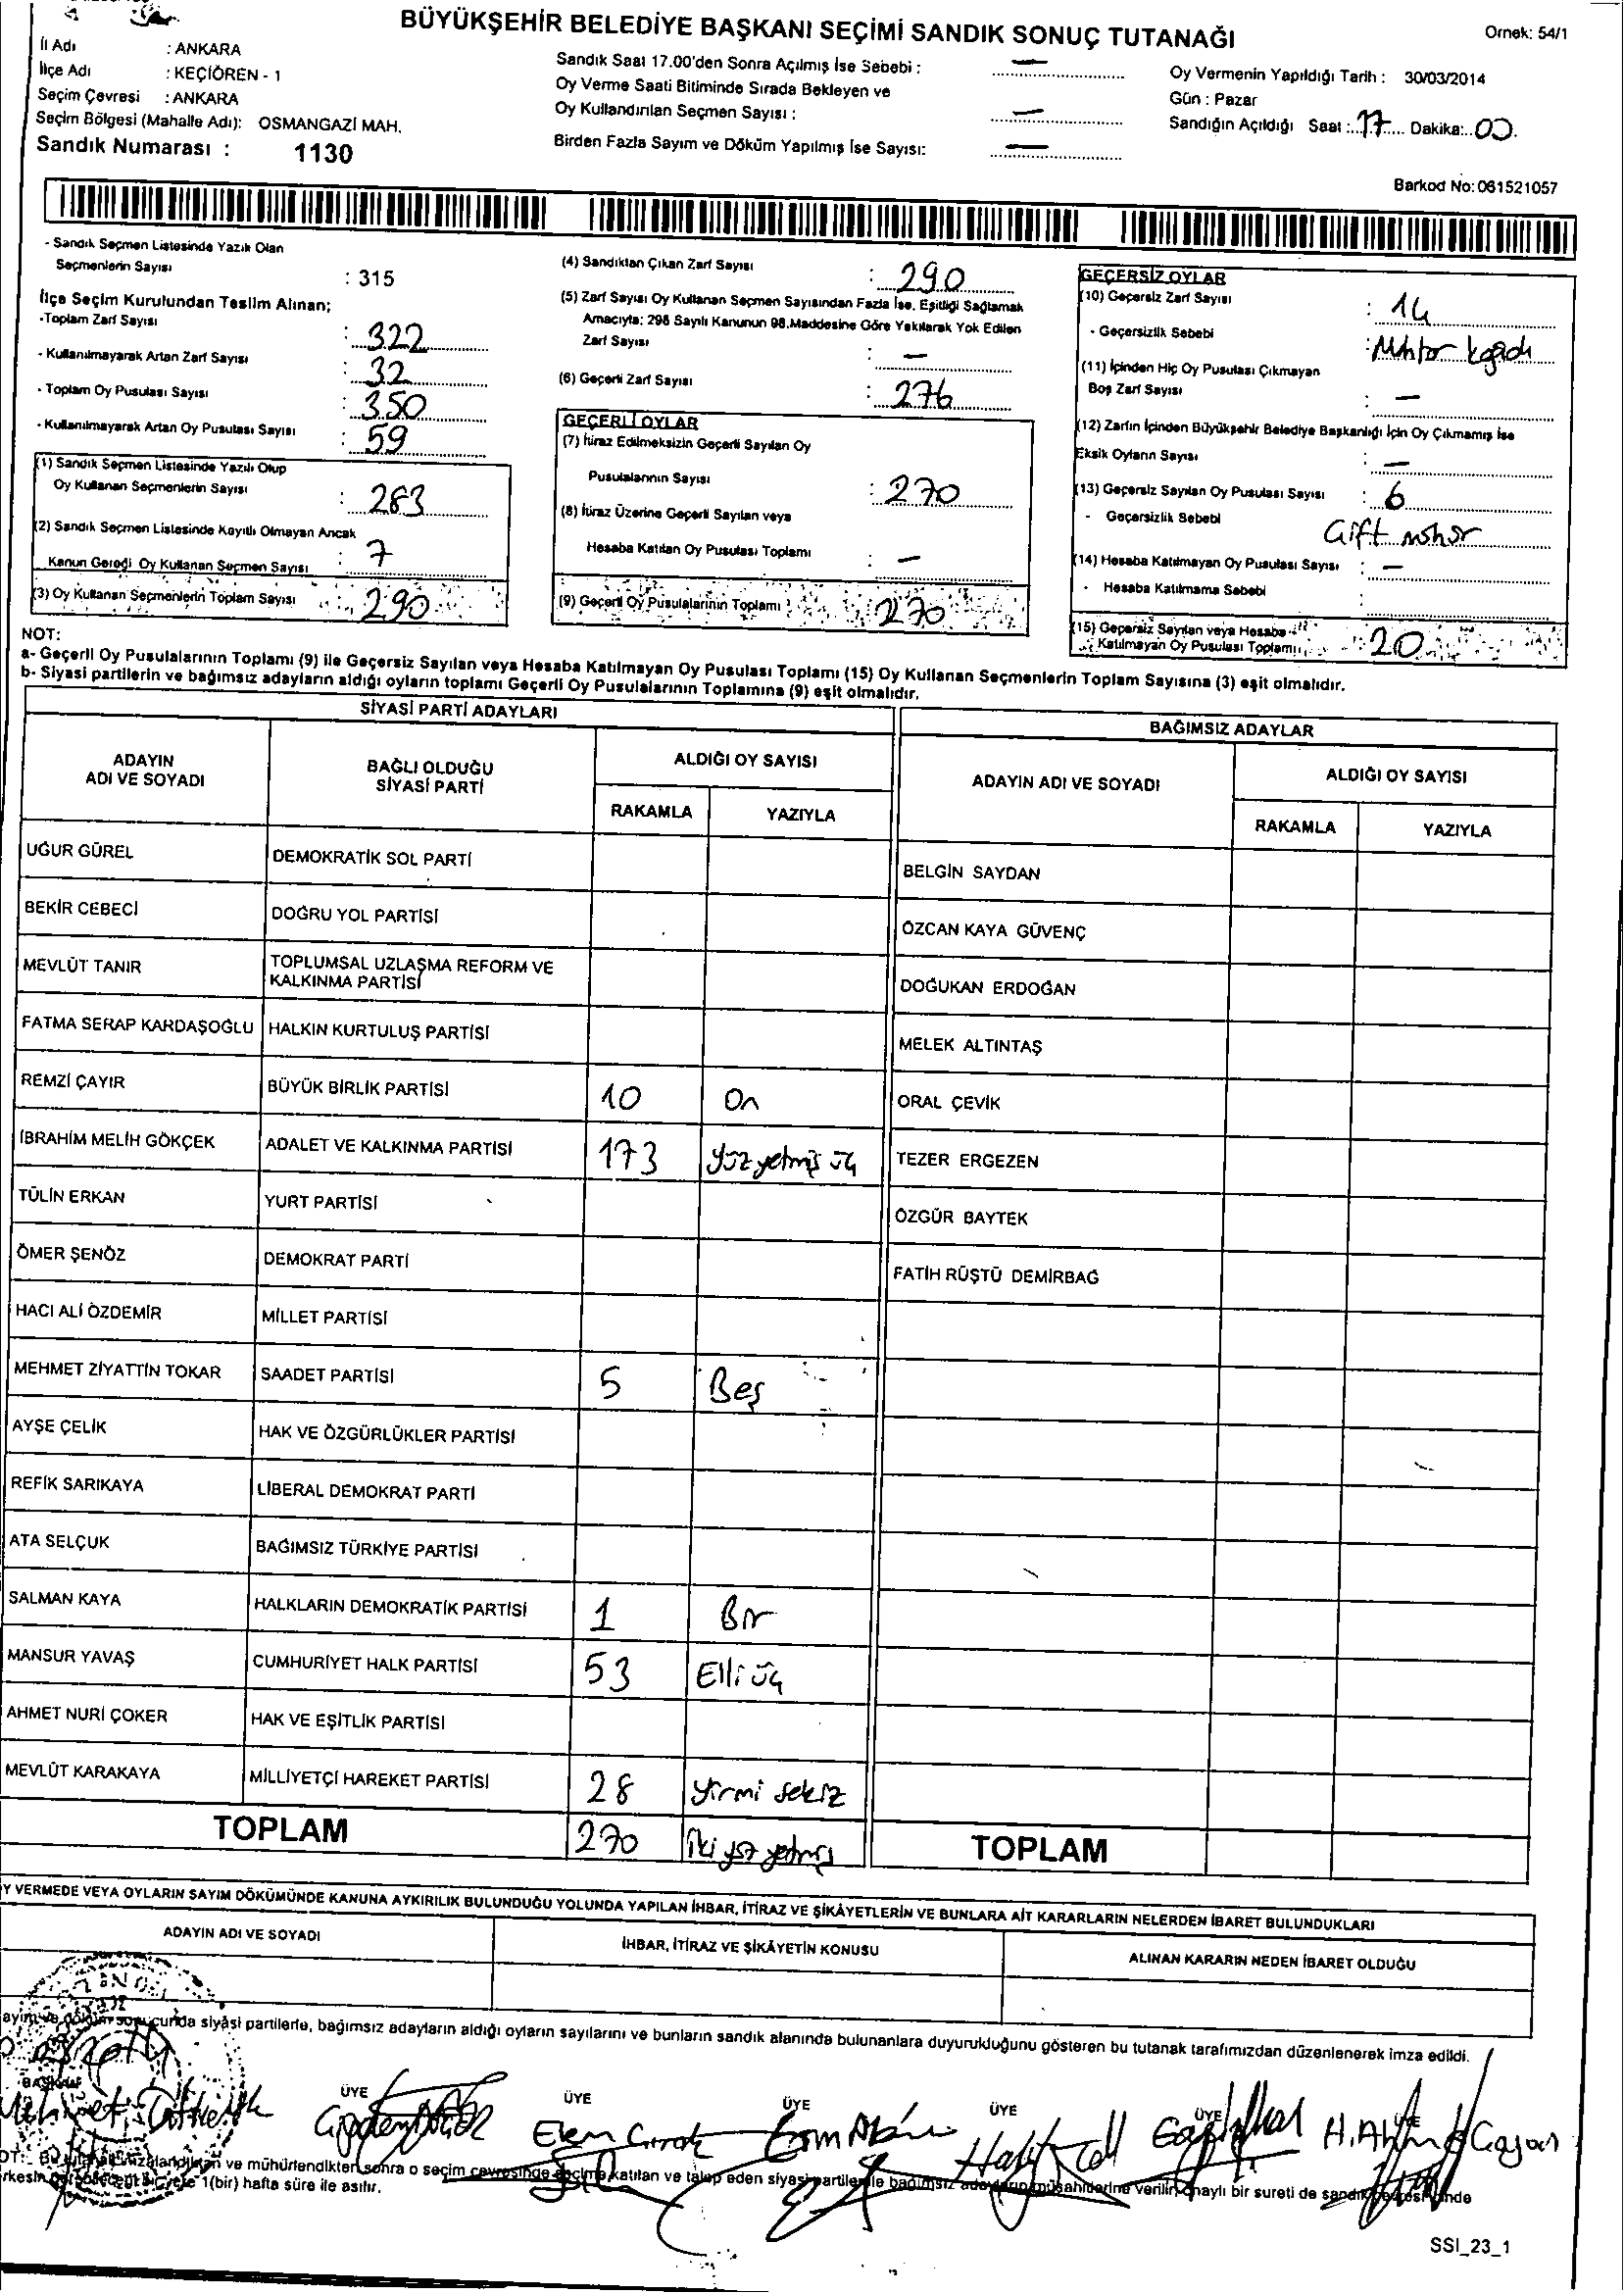 BÜYÜKŞEHİR BELEDİYE BAŞKANI SEÇİMİ SANDIK SONUÇ TUTANAĞI
Ornek: 54/1
İl Adı : ANKARA
İlçe Adı : KEÇİÖREN - 1
Seçim Çevresi : ANKARA
Seçim Bölgesi (Mahalle Adı): OSMANGAZİ MAH.
Sandık Numarası : 1130
Sandık Saat 17.00'den Sonra Açılmış İse Sebebi : —
Oy Verme Saati Bitiminde Sırada Bekleyen ve
Oy Kullandırılan Seçmen Sayısı : —
Birden Fazla Sayım ve Döküm Yapılmış İse Sayısı: —
Oy Vermenin Yapıldığı Tarih : 30/03/2014
Gün : Pazar
Sandığın Açıldığı Saat : 17 Dakika: 00
Barkod No: 061521057
- Sandık Seçmen Listesinde Yazılı Olan
Seçmenlerin Sayısı : 315
İlçe Seçim Kurulundan Teslim Alınan;
-Toplam Zarf Sayısı : 322
- Kullanılmayarak Artan Zarf Sayısı : 32
- Toplam Oy Pusulası Sayısı : 350
- Kullanılmayarak Artan Oy Pusulası Sayısı : 59
(1) Sandık Seçmen Listesinde Yazılı Olup
Oy Kullanan Seçmenlerin Sayısı : 283
(2) Sandık Seçmen Listesinde Kayıtlı Olmayan Ancak
Kanun Gereği Oy Kullanan Seçmen Sayısı : 7
(3) Oy Kullanan Seçmenlerin Toplam Sayısı : 290
(4) Sandıktan Çıkan Zarf Sayısı : 290
(5) Zarf Sayısı Oy Kullanan Seçmen Sayısından Fazla İse, Eşitliği Sağlamak
Amacıyla; 298 Sayılı Kanunun 98.Maddesine Göre Yakılarak Yok Edilen
Zarf Sayısı : —
(6) Geçerli Zarf Sayısı : 276
GEÇERLİ OYLAR
(7) İtiraz Edilmeksizin Geçerli Sayılan Oy
Pusulalarının Sayısı : 270
(8) İtiraz Üzerine Geçerli Sayılan veya
Hesaba Katılan Oy Pusulası Toplamı : —
(9) Geçerli Oy Pusulalarının Toplamı : 270
GEÇERSİZ OYLAR
(10) Geçersiz Zarf Sayısı : 14
- Geçersizlik Sebebi : Muhtar kağıdı
(11) İçinden Hiç Oy Pusulası Çıkmayan
Boş Zarf Sayısı : —
(12) Zarfın İçinden Büyükşehir Belediye Başkanlığı İçin Oy Çıkmamış İse
Eksik Oyların Sayısı : —
(13) Geçersiz Sayılan Oy Pusulası Sayısı : 6
- Geçersizlik Sebebi Çift mühür
(14) Hesaba Katılmayan Oy Pusulası Sayısı : —
- Hesaba Katılmama Sebebi :
(15) Geçersiz Sayılan veya Hesaba
Katılmayan Oy Pusulası Toplamı : 20
NOT:
a- Geçerli Oy Pusulalarının Toplamı (9) ile Geçersiz Sayılan veya Hesaba Katılmayan Oy Pusulası Toplamı (15) Oy Kullanan Seçmenlerin Toplam Sayısına (3) eşit olmalıdır.
b- Siyasi partilerin ve bağımsız adayların aldığı oyların toplamı Geçerli Oy Pusulalarının Toplamına (9) eşit olmalıdır.
SİYASİ PARTİ ADAYLARI
ADAYIN ADI VE SOYADI BAĞLI OLDUĞU SİYASİ PARTİ ALDIĞI OY SAYISI
RAKAMLA YAZIYLA
UĞUR GÜREL DEMOKRATİK SOL PARTİ
BEKİR CEBECİ DOĞRU YOL PARTİSİ
MEVLÜT TANIR TOPLUMSAL UZLAŞMA REFORM VE KALKINMA PARTİSİ
FATMA SERAP KARDAŞOĞLU HALKIN KURTULUŞ PARTİSİ
REMZİ ÇAYIR BÜYÜK BİRLİK PARTİSİ 10 On
İBRAHİM MELİH GÖKÇEK ADALET VE KALKINMA PARTİSİ 173 yüzyetmiş üç
TÜLİN ERKAN YURT PARTİSİ
ÖMER ŞENÖZ DEMOKRAT PARTİ
HACI ALİ ÖZDEMİR MİLLET PARTİSİ
MEHMET ZİYATTİN TOKAR SAADET PARTİSİ 5 Beş
AYŞE ÇELİK HAK VE ÖZGÜRLÜKLER PARTİSİ
REFİK SARIKAYA LİBERAL DEMOKRAT PARTİ
ATA SELÇUK BAĞIMSIZ TÜRKİYE PARTİSİ
SALMAN KAYA HALKLARIN DEMOKRATİK PARTİSİ 1 Bir
MANSUR YAVAŞ CUMHURİYET HALK PARTİSİ 53 Elli üç
AHMET NURİ ÇOKER HAK VE EŞİTLİK PARTİSİ
MEVLÜT KARAKAYA MİLLİYETÇİ HAREKET PARTİSİ 28 yirmi sekiz
TOPLAM 270 iki yüz yetmiş
BAĞIMSIZ ADAYLAR
ADAYIN ADI VE SOYADI ALDIĞI OY SAYISI
RAKAMLA YAZIYLA
BELGİN SAYDAN
ÖZCAN KAYA GÜVENÇ
DOĞUKAN ERDOĞAN
MELEK ALTINTAŞ
ORAL ÇEVİK
TEZER ERGEZEN
ÖZGÜR BAYTEK
FATİH RÜŞTÜ DEMİRBAĞ
TOPLAM
Y VERMEDE VEYA OYLARIN SAYIM DÖKÜMÜNDE KANUNA AYKIRILIK BULUNDUĞU YOLUNDA YAPILAN İHBAR, İTİRAZ VE ŞİKÂYETLERİN VE BUNLARA AİT KARARLARIN NELERDEN İBARET BULUNDUKLARI
ADAYIN ADI VE SOYADI İHBAR, İTİRAZ VE ŞİKÂYETİN KONUSU ALINAN KARARIN NEDEN İBARET OLDUĞU
ayım ve döküm sonucunda siyasi partilerle, bağımsız adayların aldığı oyların sayılarını ve bunların sandık alanında bulunanlara duyurukluğunu gösteren bu tutanak tarafımızdan düzenlenerek imza edildi.
BAŞKAN ÜYE ÜYE ÜYE ÜYE ÜYE
Mehmet
OT: Bu tutanak imzalandıktan ve mühürlendikten sonra o seçim çevresinde seçime katılan ve talep eden siyasi partiler ile bağımsız adayların müşahitlerine verilir, onaylı bir sureti de sandık çevresi içinde
1(bir) hafta süre ile asılır.
SSI_23_1